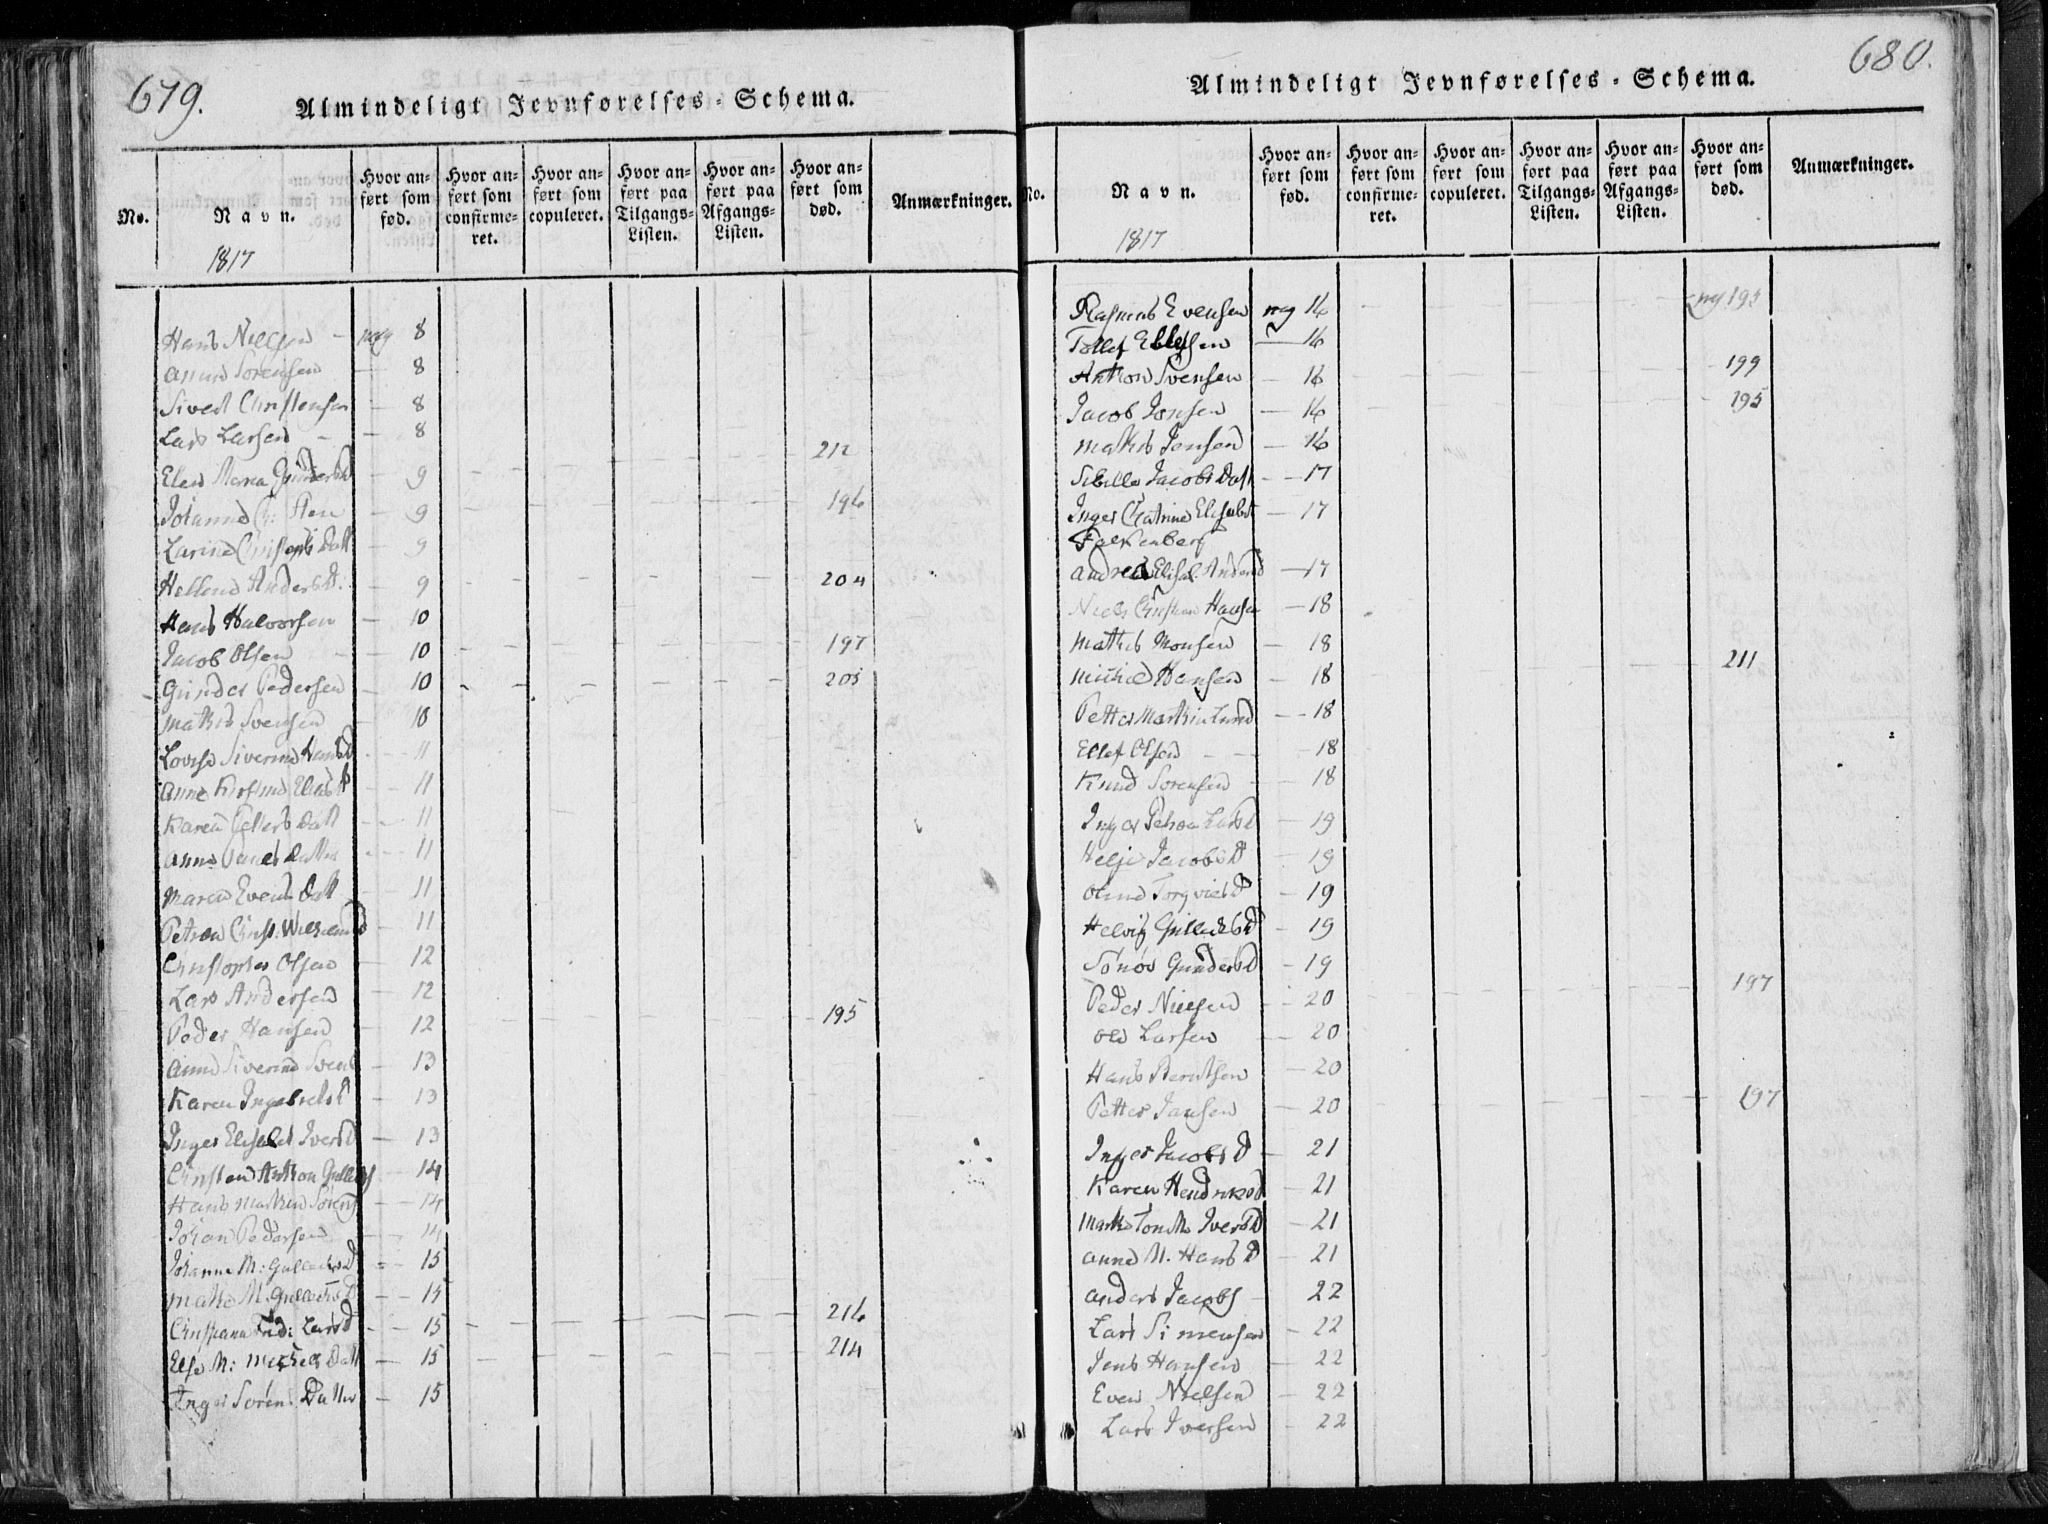 679.
Almindeligt Jevnførelses-Schema.
No.
Navn.
Hvor anført som fød.
Hvor anført som confirmeret.
Hvor anført som copuleret.
Hvor anført paa Tilgangs-Listen.
Hvor anført paa Afgangs-Listen.
Hvor anført som død.
Anmærkninger.
1817
Hans Nielsen - pag 8
Sørensen 8
Sivert Christensen - 8
Lars Larsen - 8 212
Elen Maria - 9
Johanne - 9 196
Larine Christophs Datt - 9
Hellene Anders D. - 9 204
Hans Halvorsen - 10
Jacob Olsen - 10 197
Gunder Pedersen - 10 205
Mathis Svensen 10
Lovise Siverine Hans D 11
Anne Kirstine Elias D 11
Karen Datt - 11
Anne Datter - 11
Maren Evens Datt 11
Petrea Christ: - 11
Christopher Olsen - 12
Lars Andersen - 12
Peder Hansen - 12 195
Anne Siverine Svens - 13
Karen Ingebrets D - 13
Inger Elisabet Ivers D - 13
Christen Anthon - 14
Hans Mathias Sørens - 14
Johan Pedersen 14
Johanne M: D - 15
M. D - 15
Christiane Fred: Lars D - 15 216
Else M: Michels Datt - 15 214
Inger Sørens Datter - 15
680.
Almindeligt Jevnførelses-Schema.
No.
Navn.
Hvor anført som fød.
Hvor anført som confirmeret.
Hvor anført som copuleret.
Hvor anført paa Tilgangs-Listen.
Hvor anført paa Afgangs-Listen.
Hvor anført som død.
Anmærkninger.
1817
Rasmus Evensen pag 16 pag 195
Tollef Ellefsen - 16
Anthon Svensen - 16 199
Jacob Jonsen - 16 195
Mathis Jensen - 16
Sibille Jacobs Datt - 17
Inger Catrine Elisabet - 17
Falkenberg
Andrea Elisab. Anders D - 17
Niels Christian Hansen - 18
Mathis Monsen - 18
Michel Hansen - 18 211
Petter Martin Lund - 18
Ellef Olsen - 18
Knud Sørensen - 18
Inger Petrea Lars D - 19
Helje Jacobs D - 19
D - 19
D - 19
Gunders D - 19
Peder Nielsen - 20 197
Ole Larsen - 20
Hans Berntsen - 20
Petter Jansen - 20 197
Inger Jacobs D - 21
Karen Hendriks D - 21
Ivers D - 21
Anne M. Hans D - 21
Anders Jacobs - 22
Lars Simensen - 22
Jens Hansen - 22
Even Nielsen - 22
Lars Iversen - 22